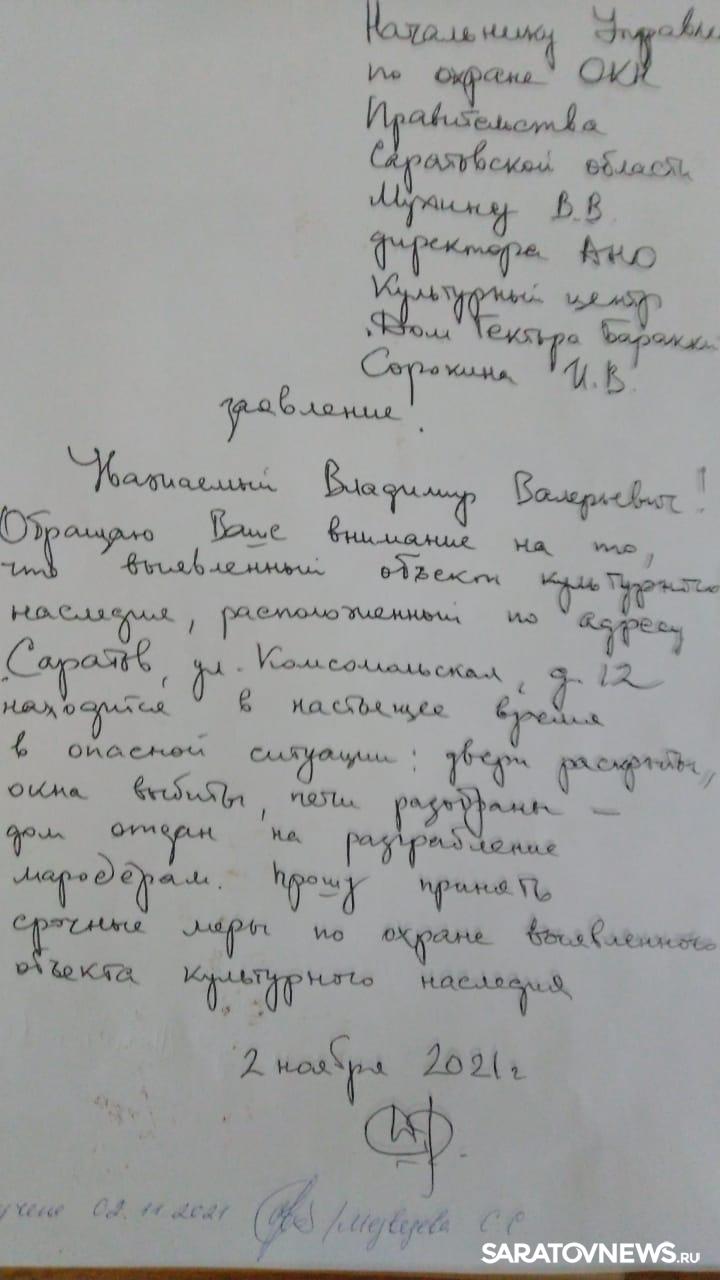 Начальнику Управле
по охране ОКН
Правительства
Саратовской области
Мухину В.В.
директора АНО
Культурный центр
"Дом Гектора Баракки
Сорокина И.В.
заявление.
Уважаемый Владимир Валерьевич!
Обращаю Ваше внимание на то,
что выявленный объект культурного
наследия, расположенный по адресу
Саратов, ул. Комсомольская, д. 12
находится в настоящее время
в опасной ситуации: двери раскрыты,
окна выбиты, печи разобраны –
дом отдан на разграбление
мародёрам. Прошу принять
срочные меры по охране выявленного
объекта культурного наследия
2 ноября 2021 г
учено 02.11.2021 /Медведева С.С
SARATOVNEWS.RU